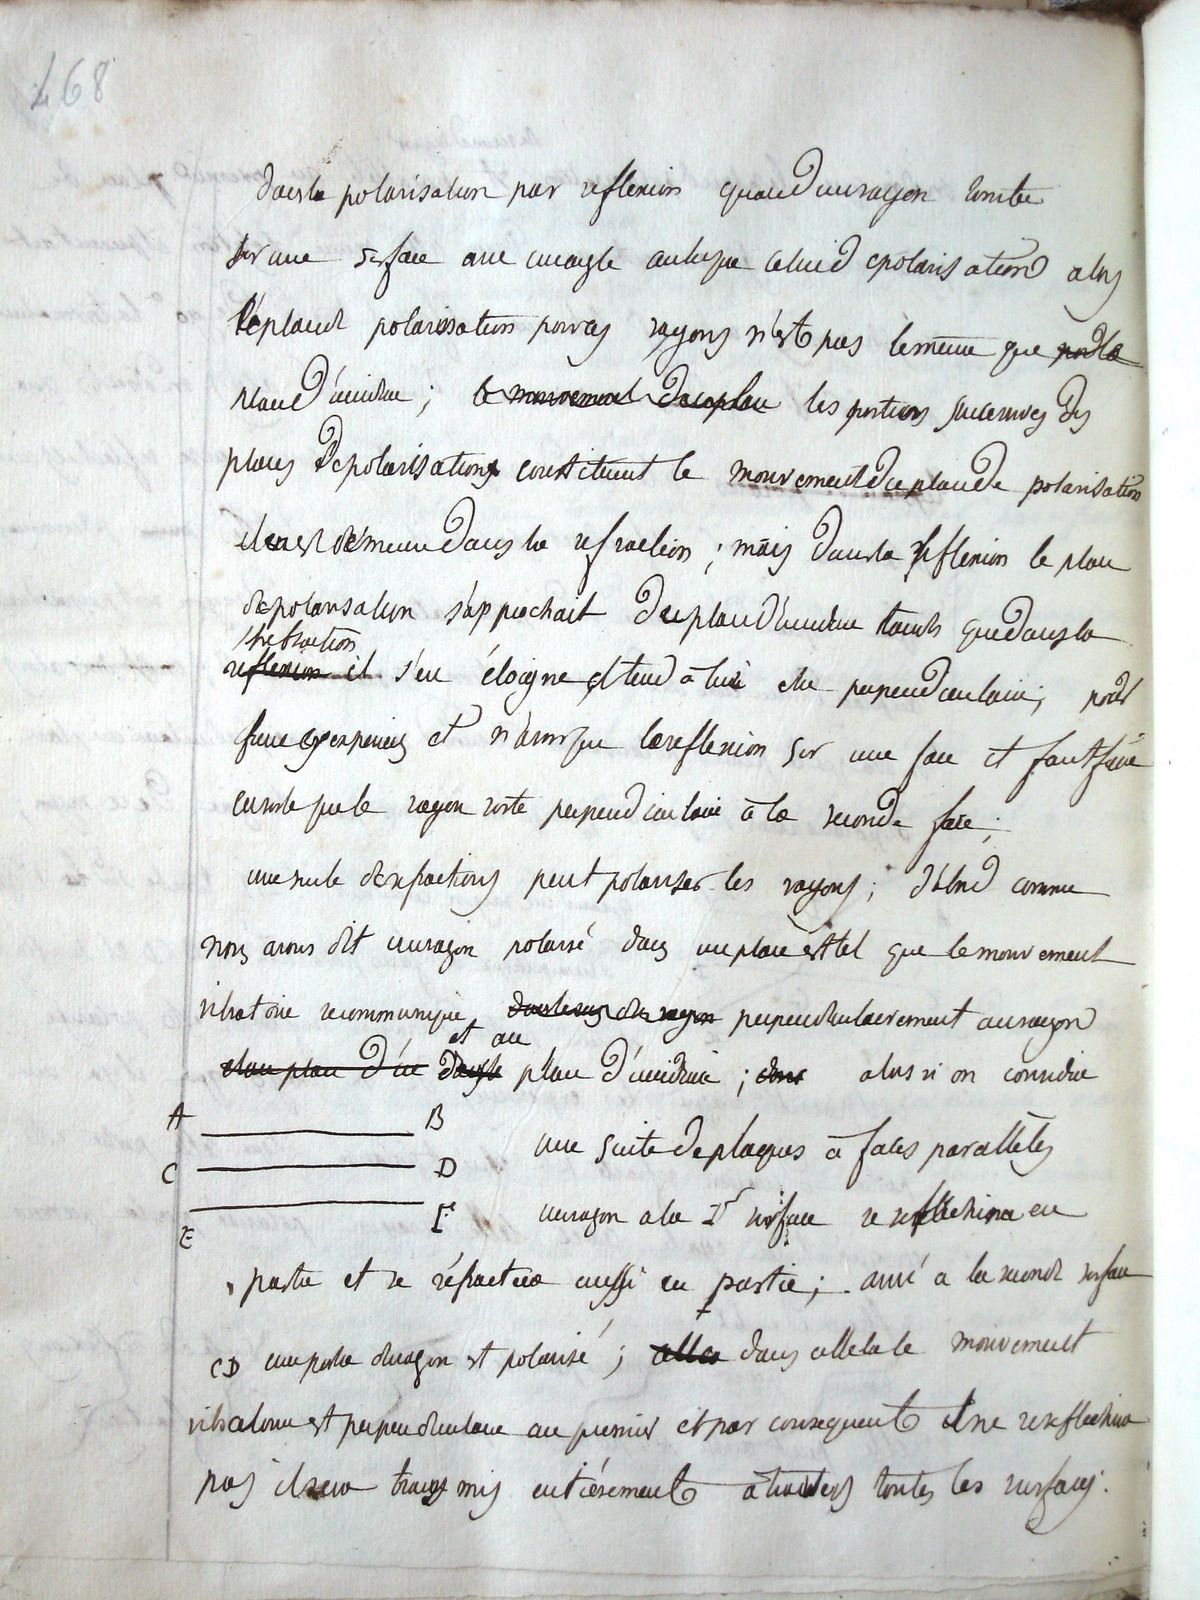 468
dans la polarisation par reflexion quand un rayon tombe
sur une surface avec un angle autre que celui de polarisation alors
le plan de polarisation pour ces rayons n'est pas le même que
plan d'incidence ; le mouvement de ce plan les portions successives des
plans de polarisations constituent le mouvement du plan de polarisation
il en est de meme dans la refraction ; mais dans la reflexion le plan
de polarisation s'approchait du plan d'incidence tandis que dans la
refraction
reflexion il s'en éloigne et tend à lui etre perpendiculaire ; pour
faire ces experiences et n'avoir que la reflexion sur une face il faut faire
en sorte que le rayon sorte perpendiculaire à la seconde face ;
une suite de refractions peut polariser les rayons ; d'abord comme
nous avons dit un rayon polarisé dans un plan est tel que le mouvement
vibratoire se communique dans le sens du rayon perpendiculairement au rayon
et au
et au plan d'in dans le plan d'incidence ; donc alors si on considere
A B
C D
E F
une suite de plaques à faces parallèles
un rayon a la 1r surface se reflechira en
partie et se réfractera aussi en partie ; arrivé a la seconde surface
CD une partie du rayon est polarisé ; elle a dans celle la le mouvement
vibratoire est perpendiculaire au premier et par consequent il ne se reflechira
pas il sera transmis entièrement à travers toutes les surfaces.